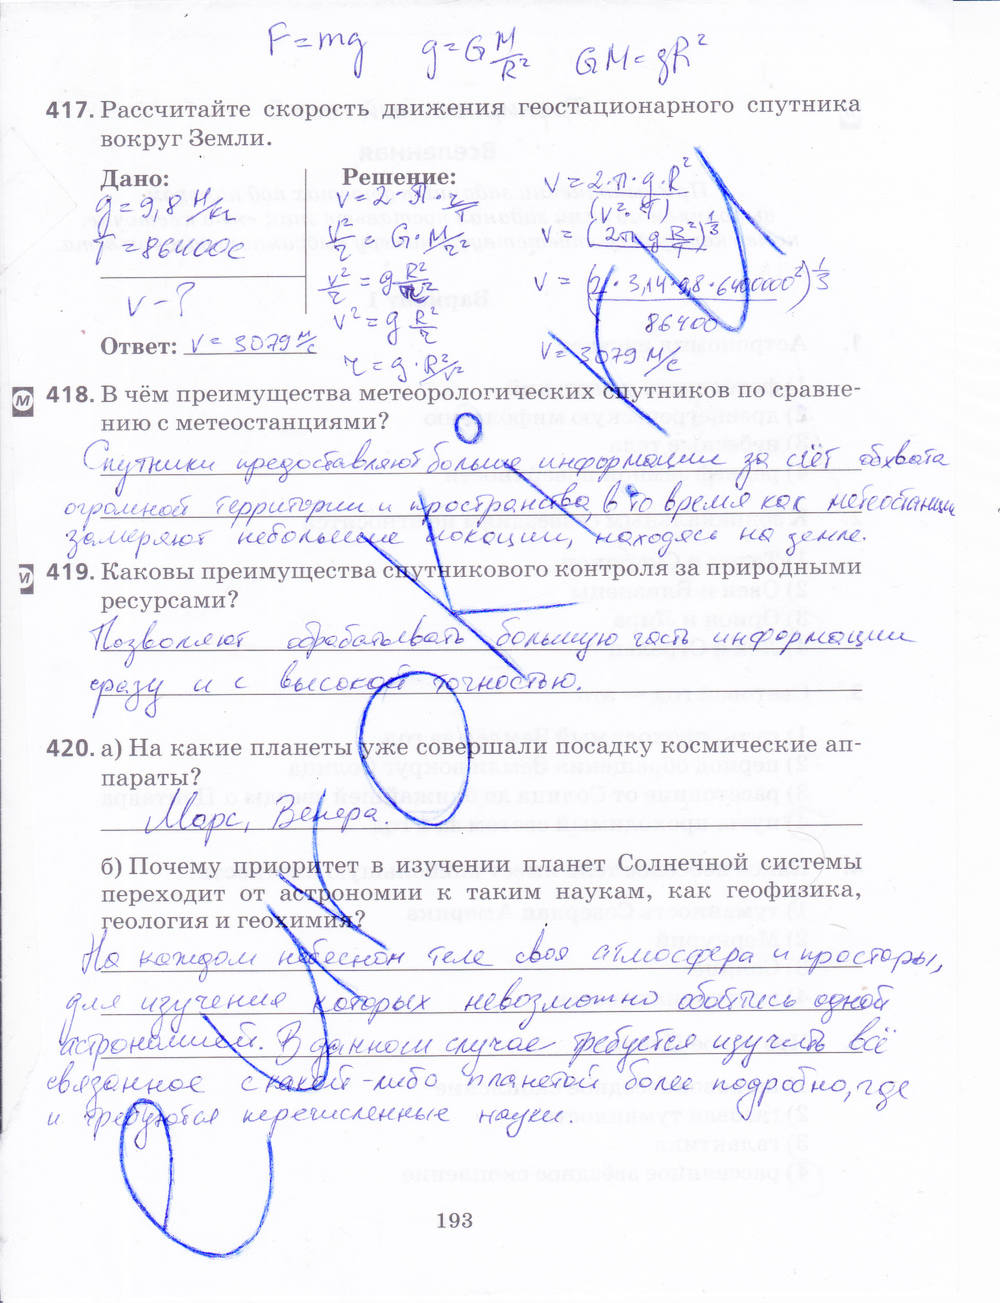 F = mg   g = G M/R²   GM = gR²
417. Рассчитайте скорость движения геостационарного спутника
вокруг Земли.
Дано:
g = 9,8 Н/кг
T = 86400 с
v - ?
Ответ: v = 3079 м/с
Решение:
v²/r = g R²/r²
v² = g R²/r
r = g · R²/v²
v = 2·π·g·R²/(v²·T)
v = (2π g R²/T)^1/3
v = 3079 м/с
418. В чём преимущества метеорологических спутников по сравне-
нию с метеостанциями?
Спутники предоставляют больше информации за счёт обхвата
огромной территории и пространства, в то время как метеостанции
замеряют небольшие локации, находясь на земле.
419. Каковы преимущества спутникового контроля за природными
ресурсами?
Позволяют обрабатывать большую часть информации
сразу и с высокой точностью.
420. а) На какие планеты уже совершали посадку космические ап-
параты?
Марс, Венера.
б) Почему приоритет в изучении планет Солнечной системы
переходит от астрономии к таким наукам, как геофизика,
геология и геохимия?
На каждом небесном теле своя атмосфера и просторы,
для изучения которых невозможно обойтись одной
астрономией. В данном случае требуется изучить всё
связанное с какой-либо планетой более подробно, где
и требуются перечисленные науки.
193